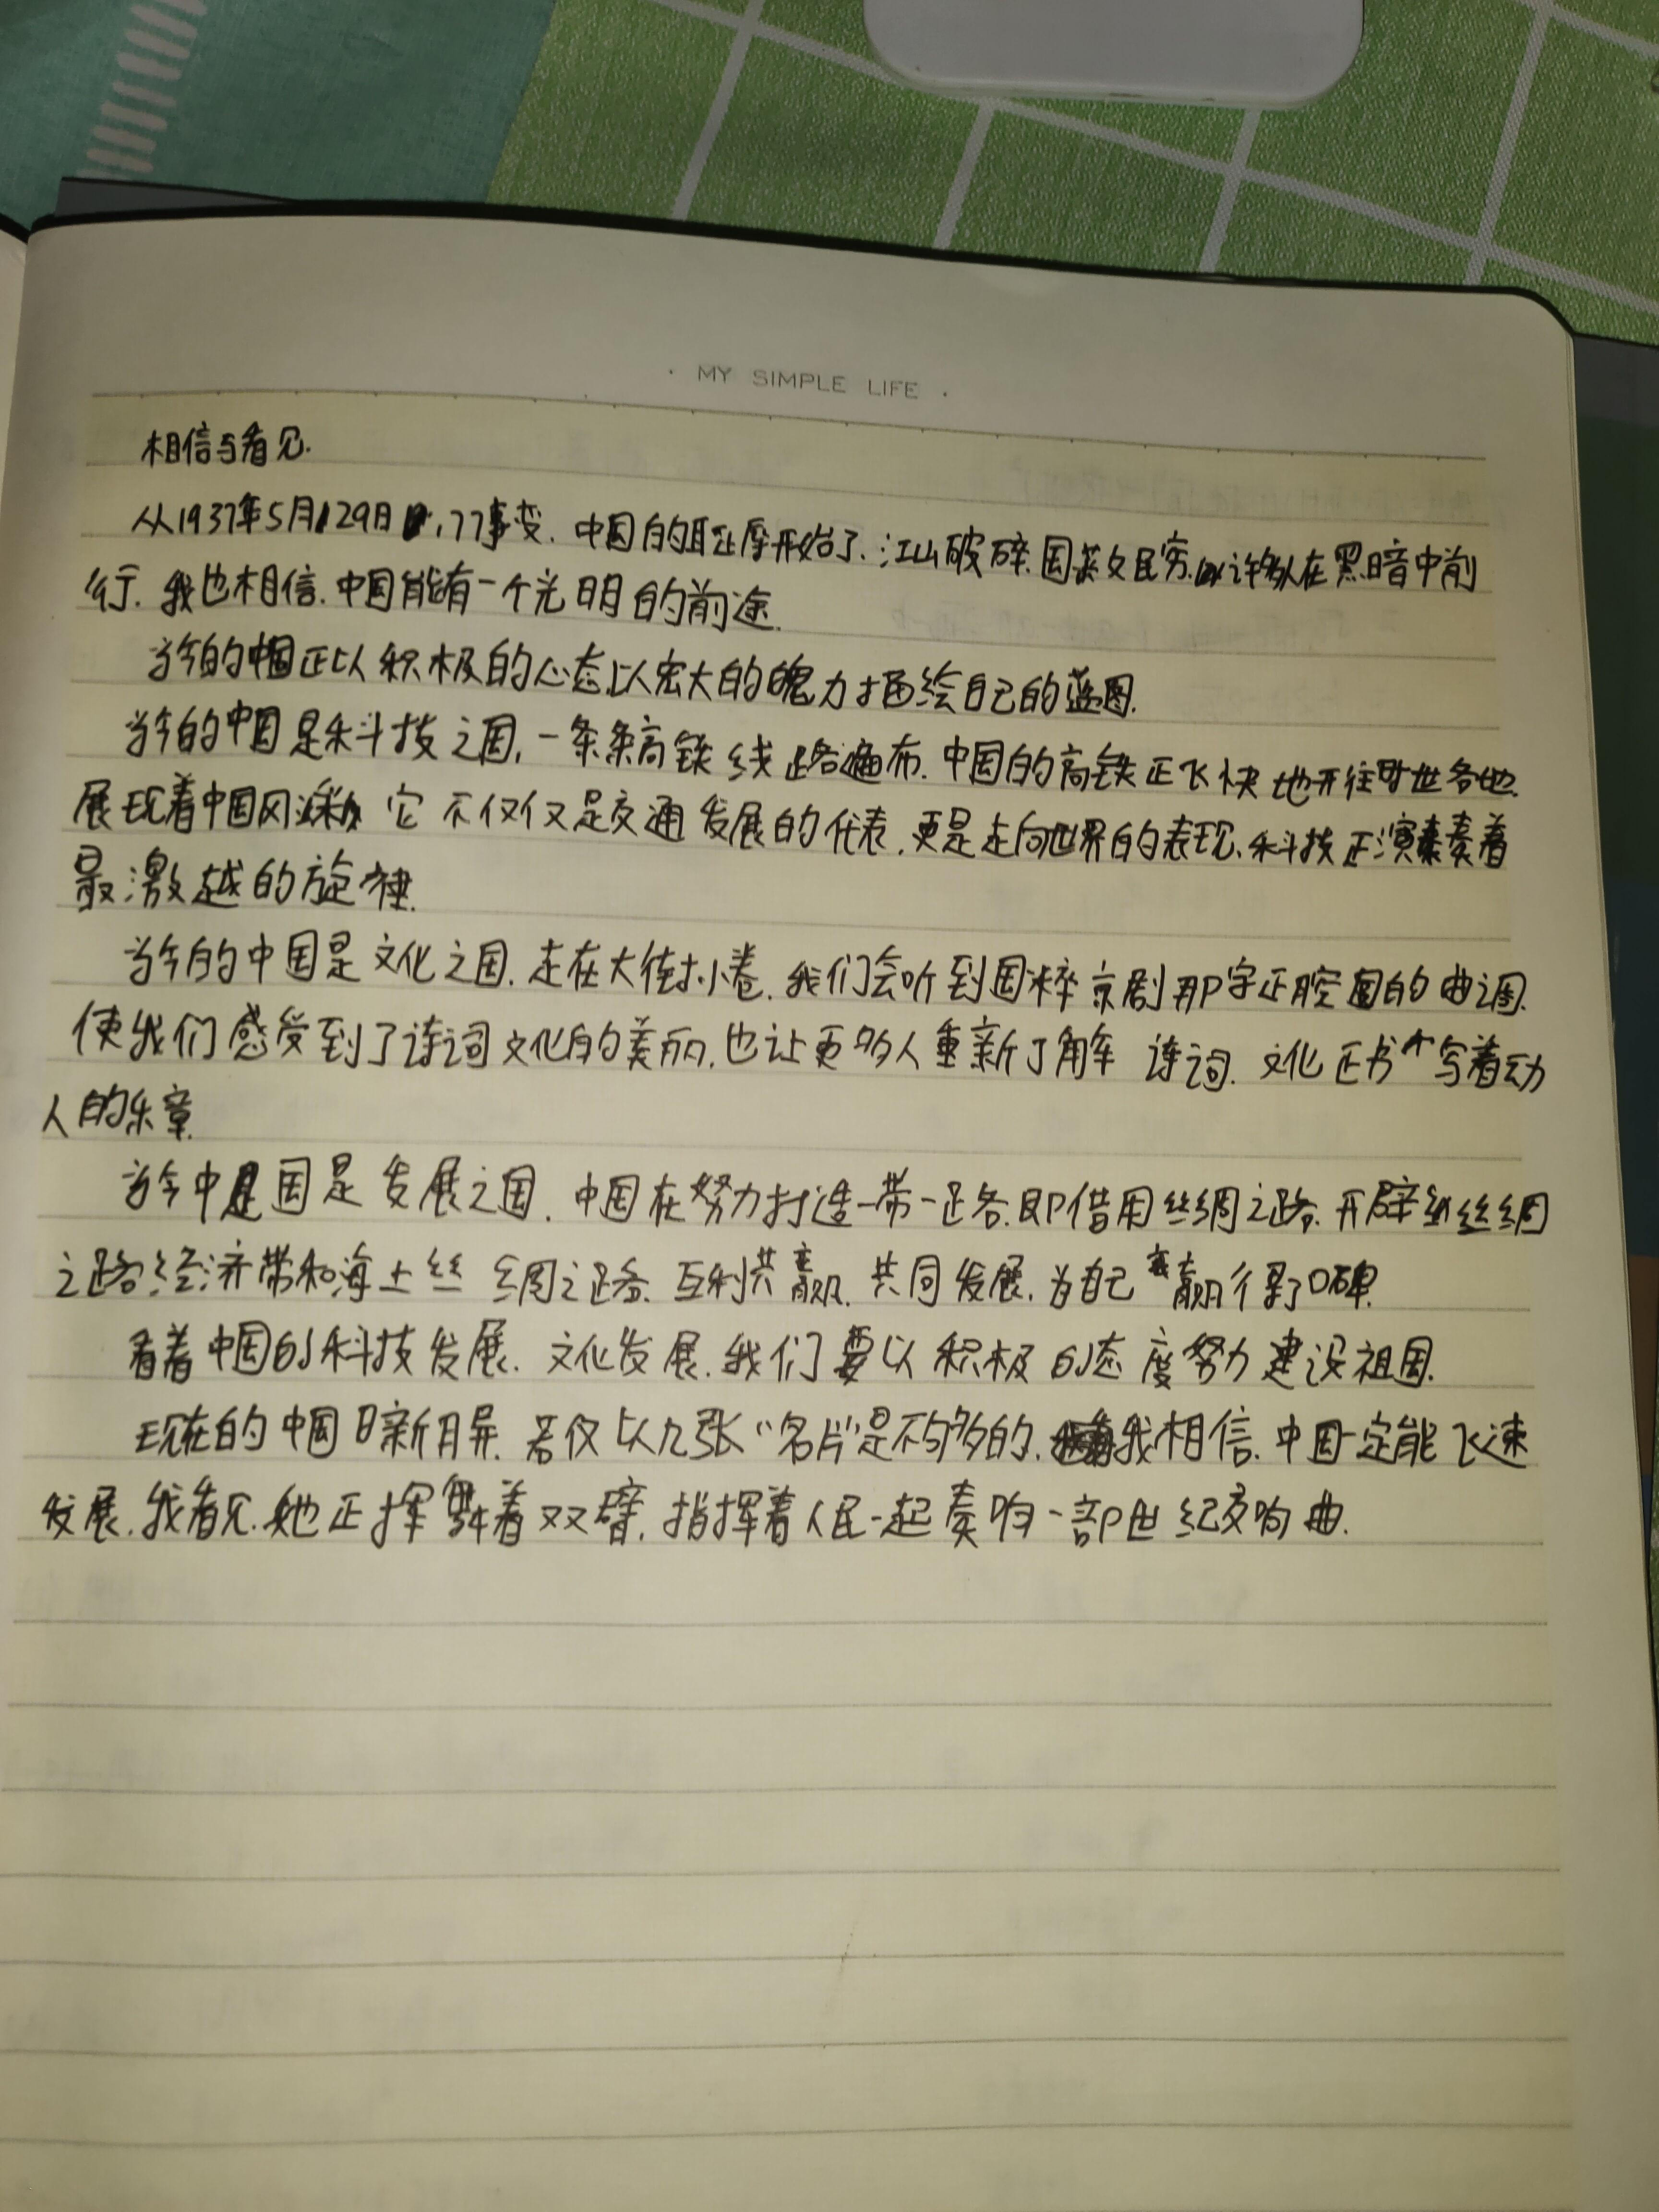 · MY SIMPLE LIFE ·
相信与看见.
从1937年5月29日,77事变.中国的耻辱开始了.江山破碎.国英文民穷.许多人在黑暗中前
行.我也相信.中国能有一个光明的前途.
当今的中国正以积极的心态,以宏大的魄力描绘自己的蓝图.
当今的中国是科技之国,一条条高铁线路遍布.中国的高铁正飞快地开往世各地.
展现着中国风采 它不仅仅是交通发展的代表.更是走向世界的表现.科技正演奏着
最激越的旋律.
当今的中国是文化之国.走在大街小巷.我们会听到国粹京剧那字正腔圆的曲调.
使我们感受到了诗词文化的美丽.也让更多人重新了解诗词.文化正书写着动
人的乐章.
当今中国是发展之国.中国在努力打造一带一路.即借用丝绸之路.开辟丝绸
之路经济带和海上丝绸之路.互利共赢.共同发展.为自己赢得了口碑.
看着中国的科技发展.文化发展.我们要以积极的态度努力建设祖国.
现在的中国日新月异.若仅以几张“名片”是不够的.我相信.中国一定能飞速
发展.我看见.她正挥舞着双臂.指挥着人民一起奏响一部世纪交响曲.